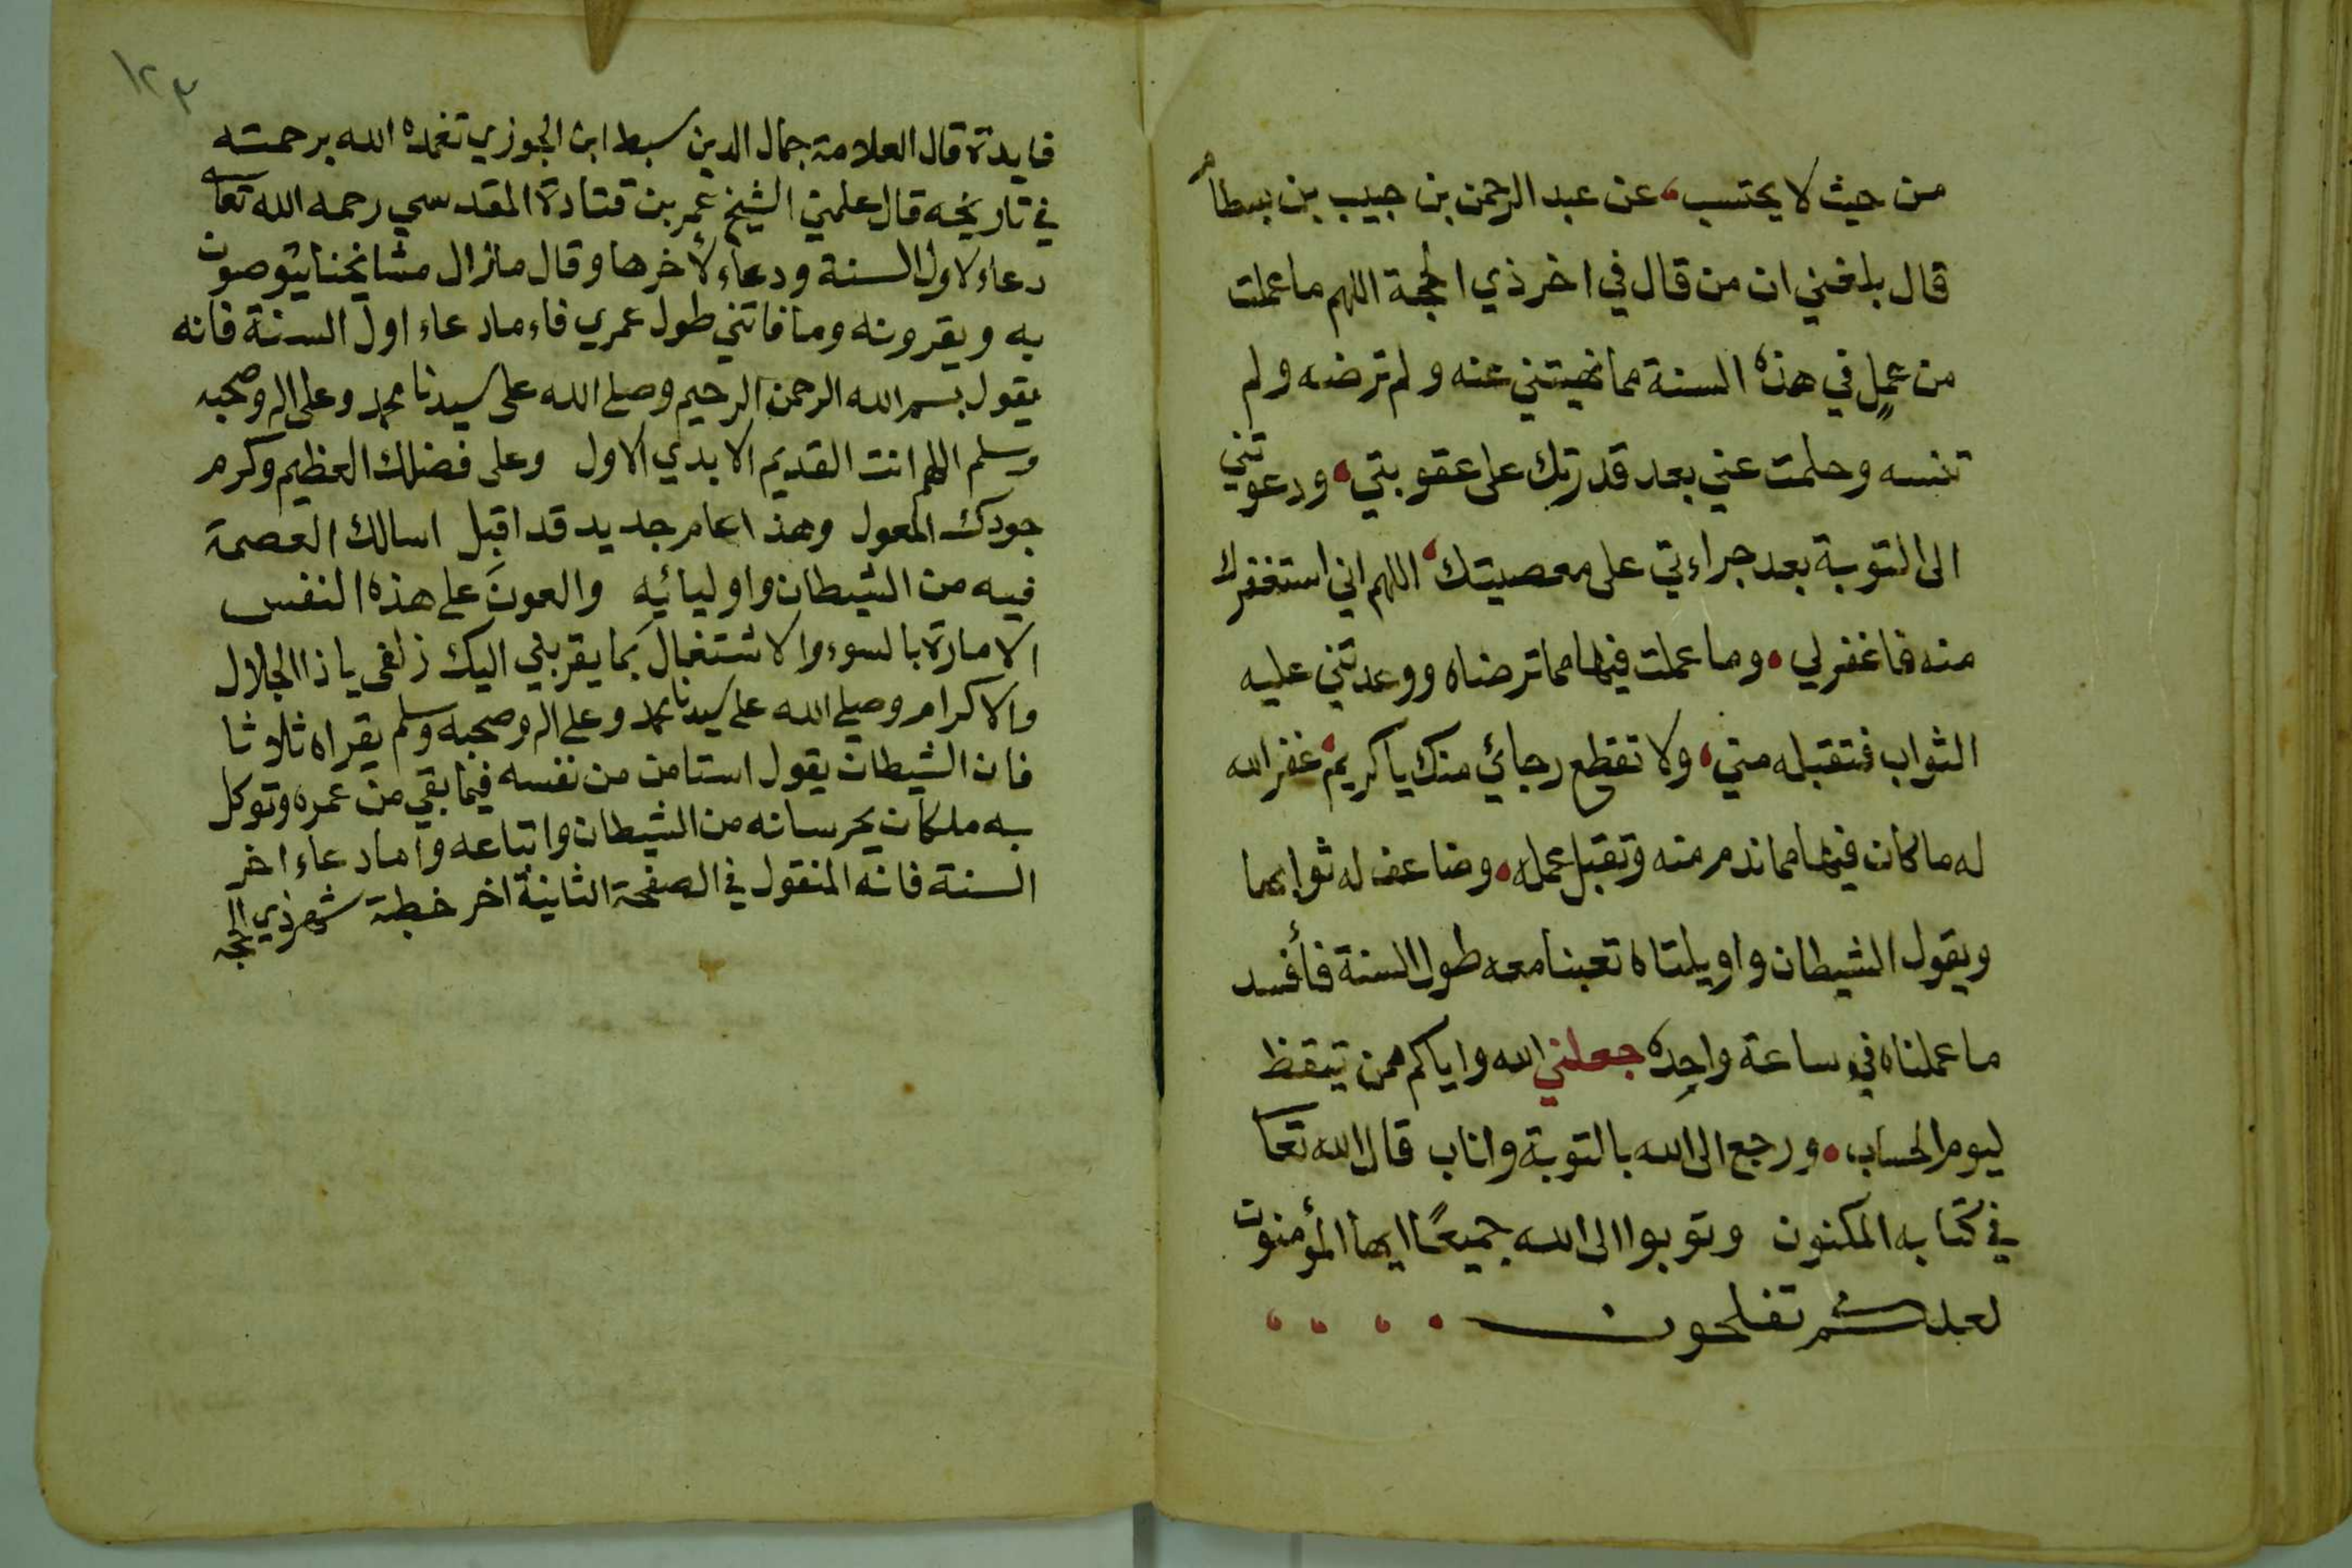 من حيث لا يحتسب، عن عبد الرحمن بن حبيب بن بسطام
قال بلغني ان من قال في اخر ذي الحجة اللهم ما عملت
من عملٍ في هذه السنة مما نهيتني عنه ولم ترضه ولم
تنسه وحلمت عني بعد قدرتك على عقوبتي، ودعوتني
الى التوبة بعد جراءتي على معصيتك، اللهم اني استغفرك
منه فاغفر لي، وما عملت فيها مما ترضاه ووعدتني عليه
الثواب فتقبله مني، ولا تقطع رجائي منك يا كريم، غفر الله
له ما كان فيها مما ندم منه وتقبل عمله، وضاعف له ثوابها
ويقول الشيطان واويلتاه تعبنا معه طول السنة فأفسد
ما عملناه في ساعة واحِده جعلني الله واياكم ممن تيقظ
ليوم الحساب، ورجع الى الله بالتوبة واناب قال الله تعا
في كتابه المكنون وتوبوا الى الله جميعًا ايها المؤمنون
لعلكم تفلحون
١٢٣
فايدة قال العلامة جمال الدين سبط ابن الجوزي تغمده الله برحمته
في تاريخه قال علمني الشيخ عمر بن قتادة المقدسي رحمه الله تعا
دعاء لاول السنة ودعاء لأخرها وقال مازال مشايخنا يتوصون
به ويقرونه وما فاتني طول عمري فاء ما دعاء اول السنة فانه
يقول بسم الله الرحمن الرحيم وصلى الله على سيدنا محمد وعلى اله وصحبه
وسلم اللهم انت القديم الابدي الاول وعلى فضلك العظيم وكرم
جودك المعول وهذا عام جديد قد اقبل اسالك العصمة
فيه من الشيطان واوليائيه والعونَ على هذه النفس
الامارة بالسوء والاشتغال بما يقربني اليك زلفى يا ذا الجلال
والاكرام وصلى الله على سيدنا محمد وعلى اله وصحبه وسلم يقراه ثلاثا
فان الشيطان يقول استامن من نفسه فيما بقي من عمره وتوكل
به ملكان يحرسانه من الشيطان واتباعه واما دعاء اخر
السنة فانه المنقول في الصفحة الثانية اخر خطبة شهر ذي الحجه